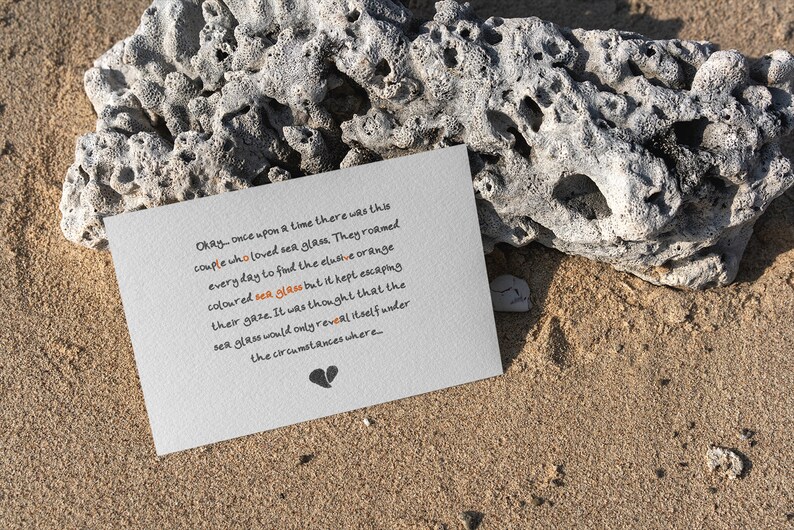 Okay... once upon a time there was this
couple who loved sea glass. They roamed
every day to find the elusive orange
coloured sea glass but it kept escaping
their gaze. It was thought that the
sea glass would only reveal itself under
the circumstances where...